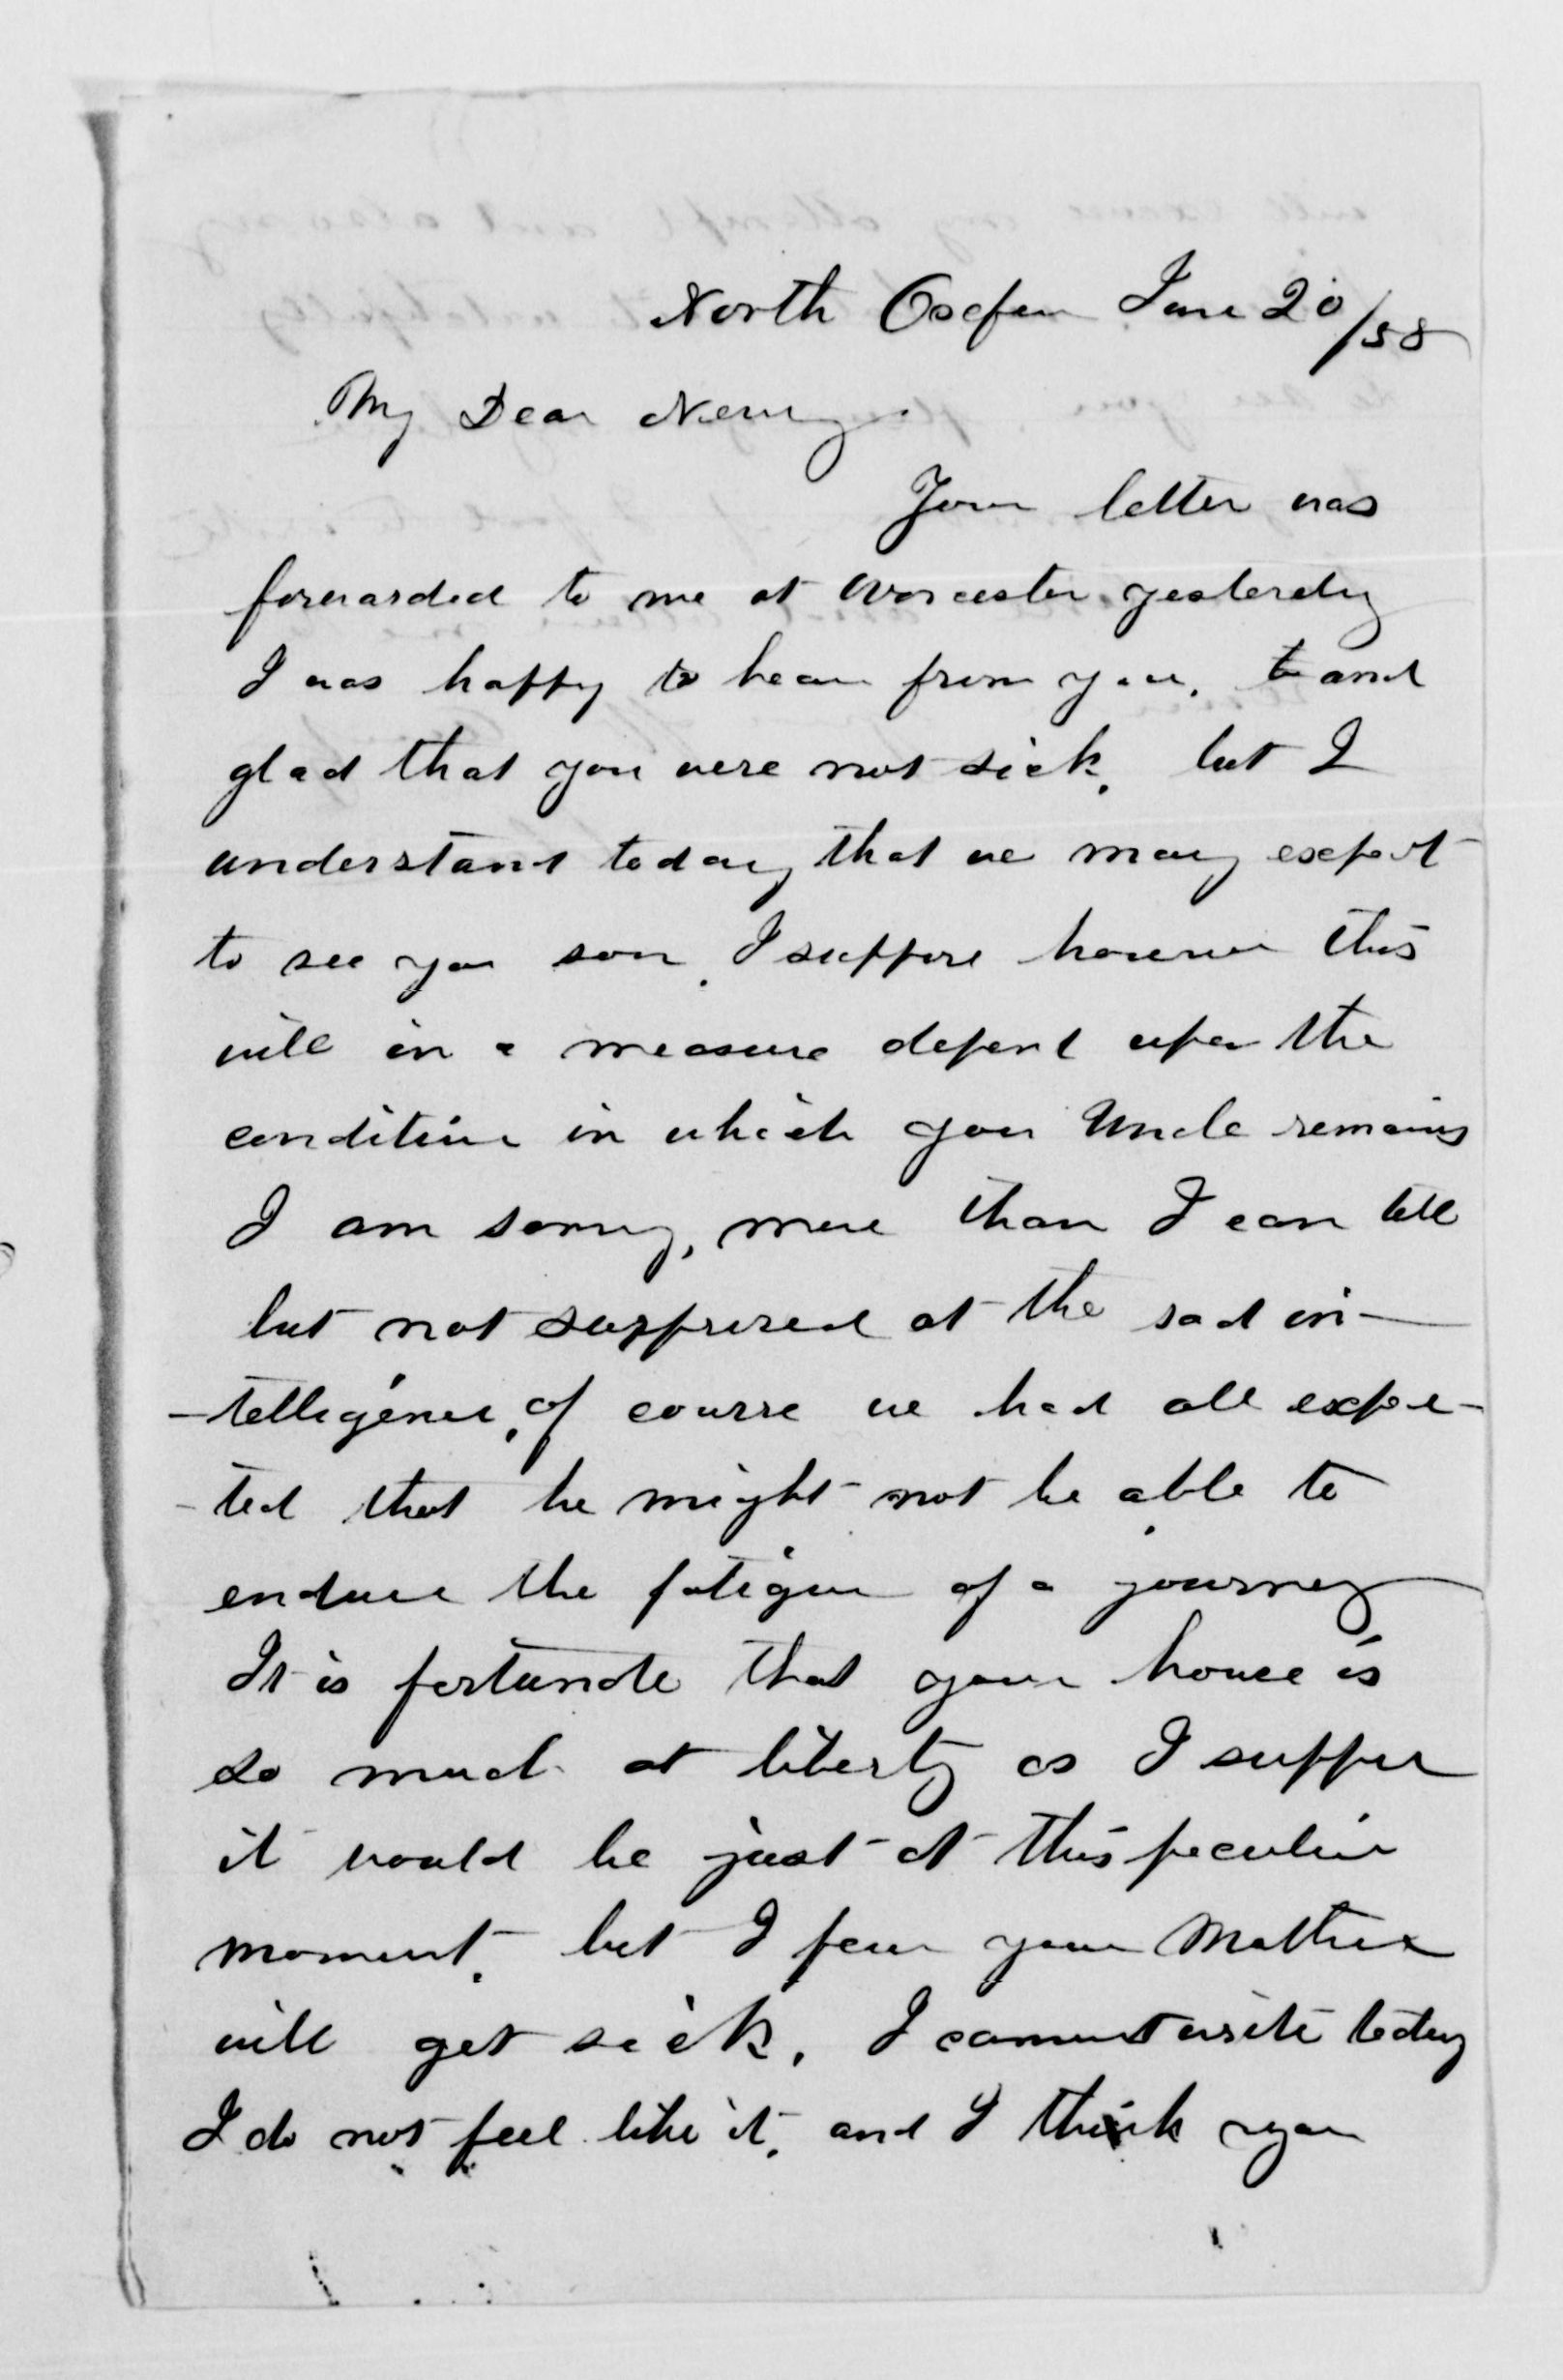 North Oxford June 20/58
My Dear Nenny
Your letter was
forwarded to me at Worcester yesterday
I was happy to hear from you, to and
glad that you were not sick, but I
understand today that we may expect
to see you soon, I suppose however this
will in a measure depend upon the
condition in which your Uncle remains
I am sorry, more than I can tell
but not surprised at the sad in-
-telligence, of course we had all expec-
-ted that he might not be able to
endure the fatigue of a journey
It is fortunate that your house is
so much at liberty as I suppose
it would be just at this peculiar
moment, but I fear your Mother
will get sick, I cannot write today
I do not feel like it, and I think you